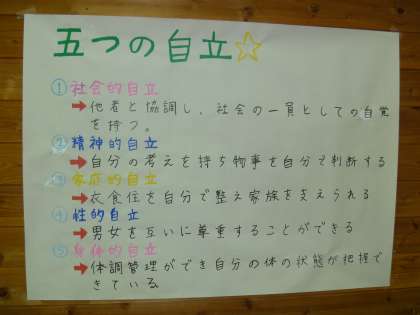 五つの自立☆
①社会的自立
→他者と協調し、社会の一員としての自覚
を持つ。
②精神的自立
→自分の考えを持ち物事を自分で判断する
③家庭的自立
→衣食住を自分で整え家族を支えられる
④性的自立
→男女を互いに尊重することができる
⑤身体的自立
→体調管理ができ自分の体の状態が把握で
きている